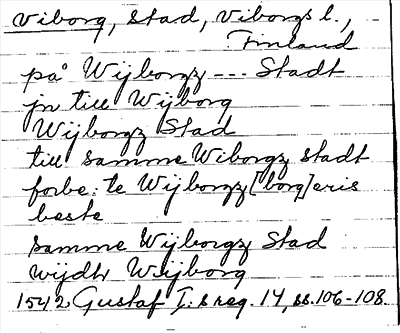 Viborg, stad, Viborgs l.,
Finland
på Wijborgz --- Stadt
jn till Wijborg
Wijborgz Stad
till samme Wiborgz stadt
forbe: te Wijborgz[borg]eris
beste
samme Wijborgz Stad
wijdh Wijborg
1542 Gustaf I:s reg. 14, ss. 106-108.